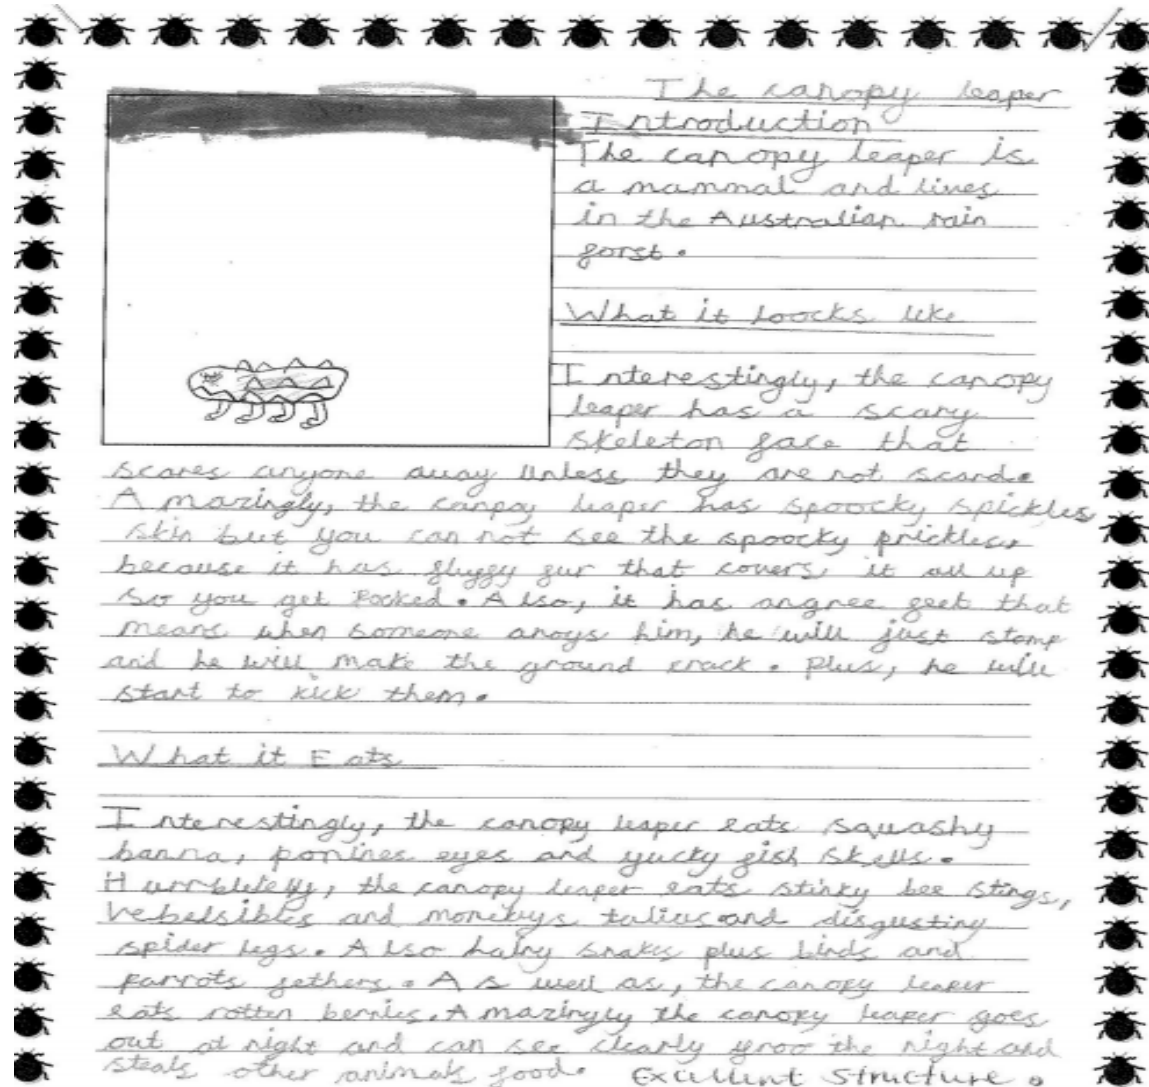 The canopy leaper
Introduction
The canopy leaper is
a mammal and lives
in the Australian rain
forst.
What it loocks like
Interestingly, the canopy
leaper has a scary
skeleton face that
scares anyone away unless they are not scard.
Amazingly, the canpoy leaper has spoocky spickles
skin but you can not see the spoocky prickles,
because it has fluffy fur that covers it all up
so you get Pocked. Also, it has angree feet that
means when someone anoys him, he will just stomp
and he will make the ground crack. Plus, he will
start to kick them.
What it Eats
Interestingly, the canopy leaper eats squashy
banna, eyes and yucky fish
the canopy leaper eats stinky bee stings,
and and disgusting
spider legs. Also hairy snakes plus birds and
parrots fethers. As well as, the canopy leaper
eats rotten berries. Amazingly the canopy leaper goes
out at night and can see clearly the night and
steals other animals food. Excellent structure.